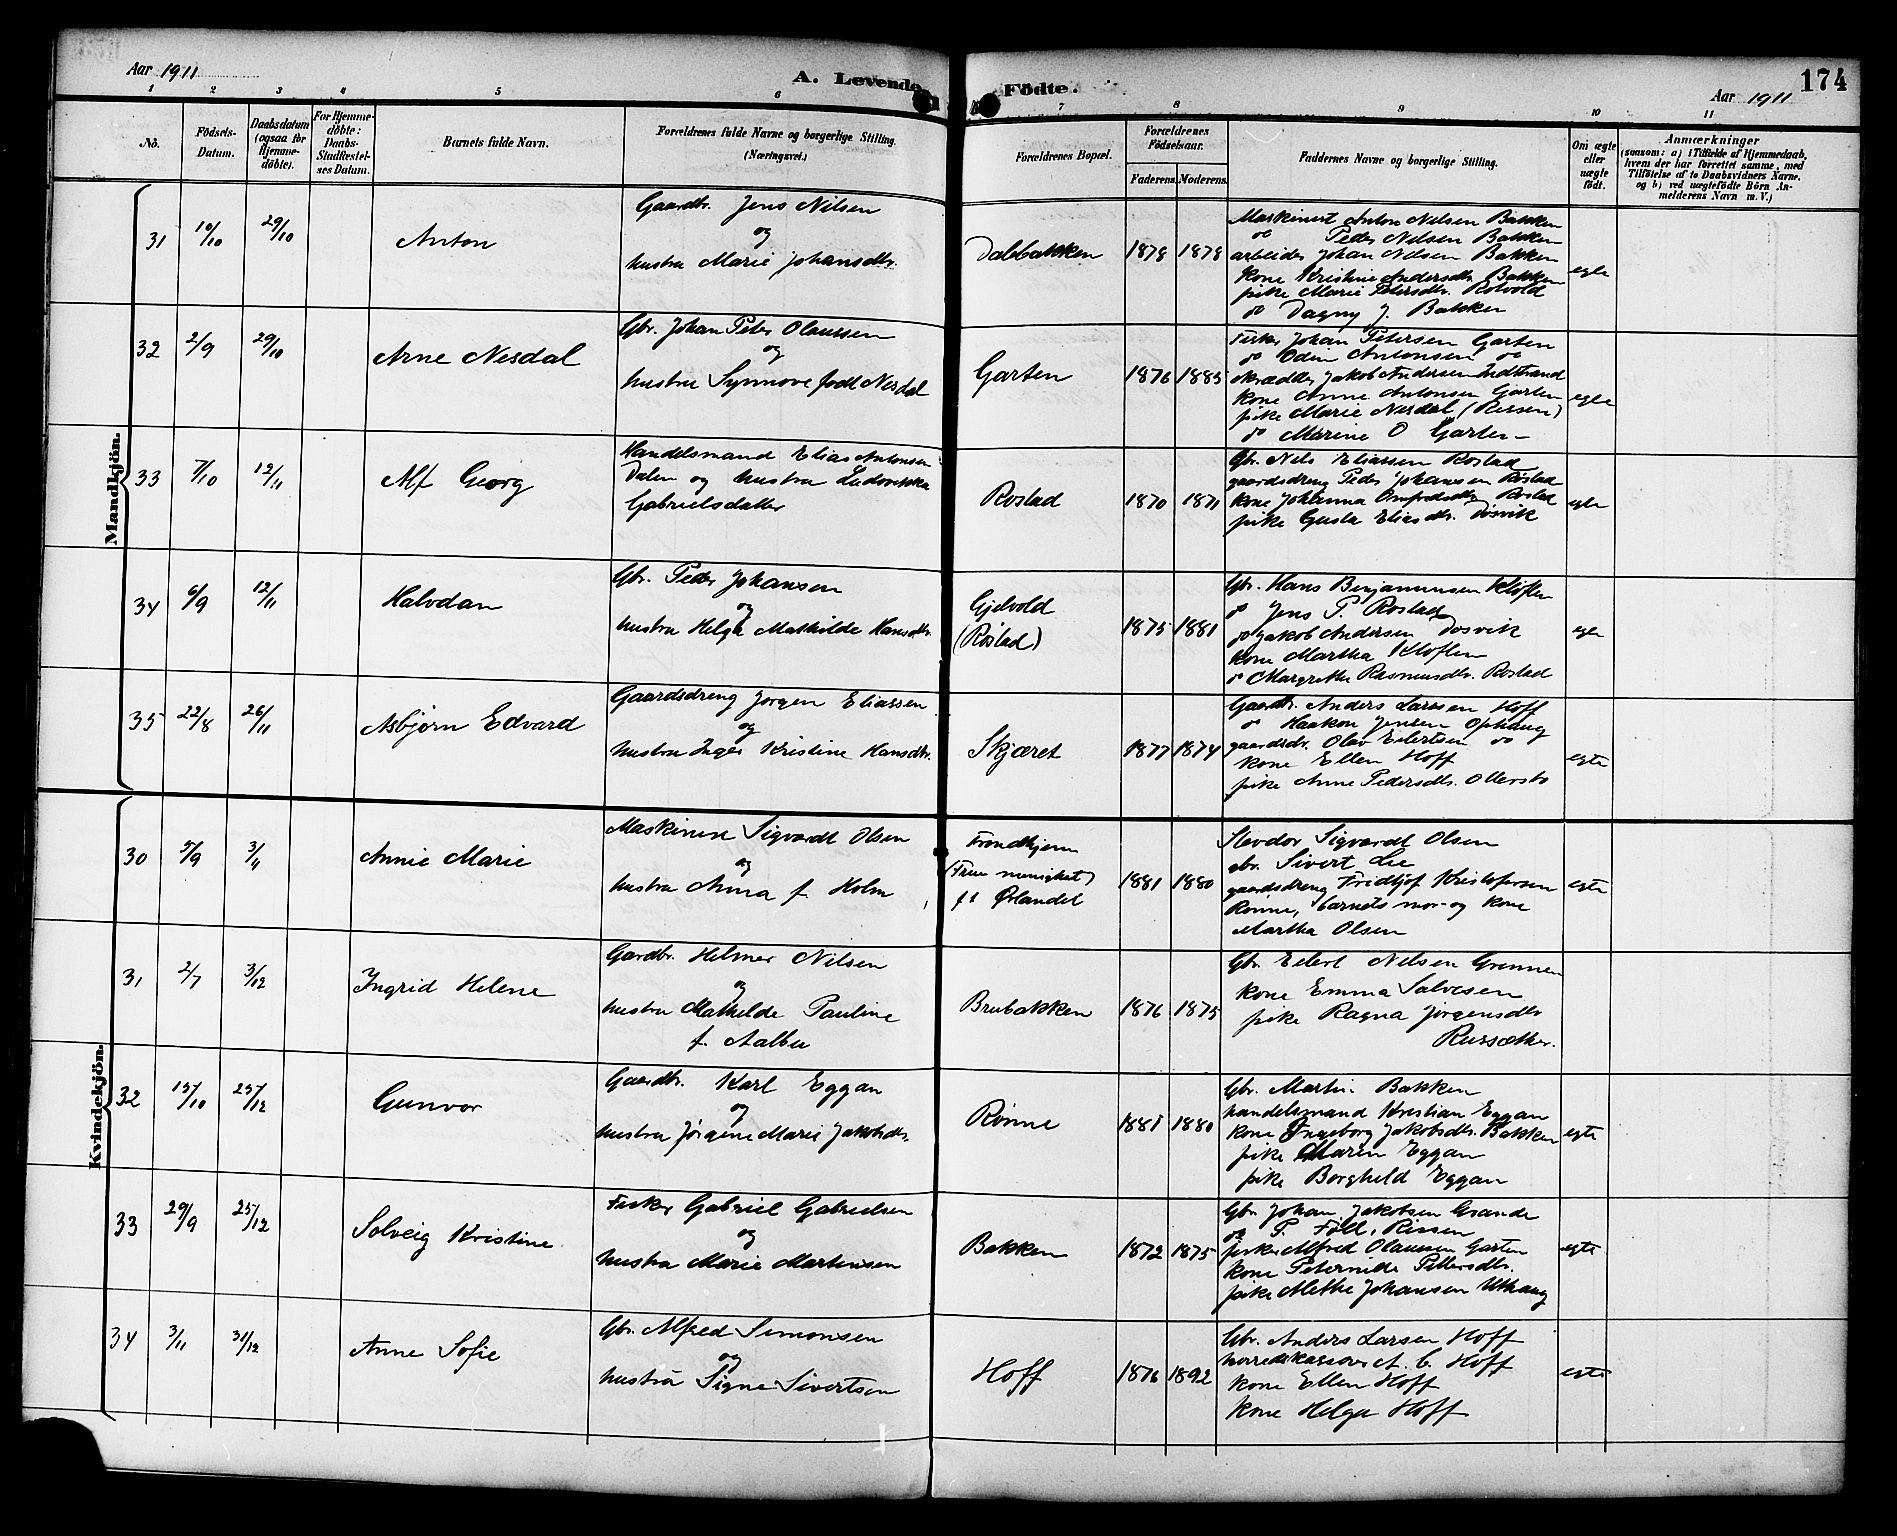 Aar 1911
A. Levende Födte.
Aar 1911
174
1 2 3 4 5 6 7 8 9 10 11
No.
Födsels-Datum.
Daabsdatum (ogsaa for Hjemme-döbte).
For Hjemme-döbte: Daabs-Stadfæstel-ses Datum.
Barnets fulde Navn.
Forældrenes fulde Navne og borgerlige Stilling. (Næringsvei.)
Forældrenes Bopæl.
Forældrenes Födselsaar.
Faderens. Moderens.
Faddernes Navne og borgerlige Stilling.
Om ægte eller uægte født.
Anmærkninger
(saasom: a) i Tilfælde af Hjemmedaab, hvem der har forrettet samme, med Tilföielse af to Daabsvidners Navne, og b) ved uægtefödte Börn An-melderens Navn m. V.)
Mandkjön.
31 10/10 29/10 Anton
Gaardbr. Jens Nilsen
og
hustru Marie Johansdtr.
Dalbakken 1878 1878
Maskinist Anton Nilsen Bakken
do Peder Nilsen Bakken
arbeider Johan Nilsen Bakken
kone Kristine Andersdtr. Bakken
pike Marie Petersdtr. Rotvold
do Dagny J. Bakken
egte
32 2/9 29/10 Arne Nesdal
Gbr. Johan Peter Olaussen
og
hustru Synnove født Nesdal
Garten 1876 1885
Fisker Johan Petersen Garten
do Odin Antonsen do
skrædder Jakob Andersen Indstrand
kone Anne Antonsen Garten
pike Marie Nesdal (Rissen)
do Marine O Garten
egte
33 7/10 12/11 Alf Georg
Handelsmand Elias Antonsen
Dalen og hustru Ludovikka
Gabrielsdatter
Rostad 1870 1871
Gbr. Nils Eliassen Rostad
gaardsdreng Peder Johansen Rostad
kone Johanna Rostad
pike Gusta Eliasdtr. Døsvik
egte
34 6/9 12/11 Halvdan
Gbr. Peder Johansen
og
hustru Helga Mathilde Hansdtr.
Gjelvold
(Røstad)
1875 1881
Gbr. Hans Benjaminsen Kløften
do Jens P. Rostad
do Jakob Andersen Døsvik
kone Martha Kløften
do Margrethe Rasmusdtr. Rostad
egte
35 22/8 26/11 Asbjørn Edvard
Gaardsdreng Jørgen Eliassen
og
hustru Inger Kristine Hansdtr.
Skjæret 1877 1874
Gaardbr. Anders Larssen Hoff
do Haakon Jensen Ophaug
gaardsdr. Olav Eilertsen do
kone Ellen Hoff
pike Anne Pedersdtr. Ottersbo
egte
Kvindekjön.
30 5/9 3/11 Annie Marie
Maskinist Sigvardt Olsen
og
hustru Anna f. Holm
Trondhjem
(Frue menighet)
f.t. Ørlandet
1881 1880
Sigvardt Olsen
gbr. Sivert Lie
gaardsdreng Fridtjof Kristofersen
Rønne, barnets mor og kone
Martha Olsen
egte
31 2/7 3/12 Ingrid Helene
Gardbr. Helmer Nilsen
og
hustru Mathilde Pauline
f. Aalbu
Brubakken 1876 1875
Gbr. Eilert Nilsen Grønnen
kone Emma Salvesen
pike Ragna Jørgensdtr
Russæther.
32 15/10 25/12 Gunvor
Gaardbr. Karl Eggan
og
hustru Jørgine Marie Jakobsdtr.
Rønne 1881 1880
Gbr. Martin Bakken
handelsmand Kristian Eggan
kone Ingeborg Jakobsdtr. Bakken
pike Maren Eggan
pike Borghild Eggan
egte
33 29/9 25/12 Solveig Kristine
Fisker Gabriel Gabrielsen
og
hustru Marie Martinsen
Bakken 1872 1875
Gbr. Johan Jakobsen Grande
do P. Føll, Rissen
fisker Alfred Olaussen Garten
kone Peternille Pettersdtr.
pike Methe Johansen Uthaug
egte
34 3/11 31/12 Anne Sofie
Gbr. Alfred Simonsen
og
hustru Signe Sivertsen
Hoff 1876 1892
Gbr. Anders Larsen Hoff
herredskasserer A. C. Hoff
kone Ellen Hoff
kone Helga Hoff
egte